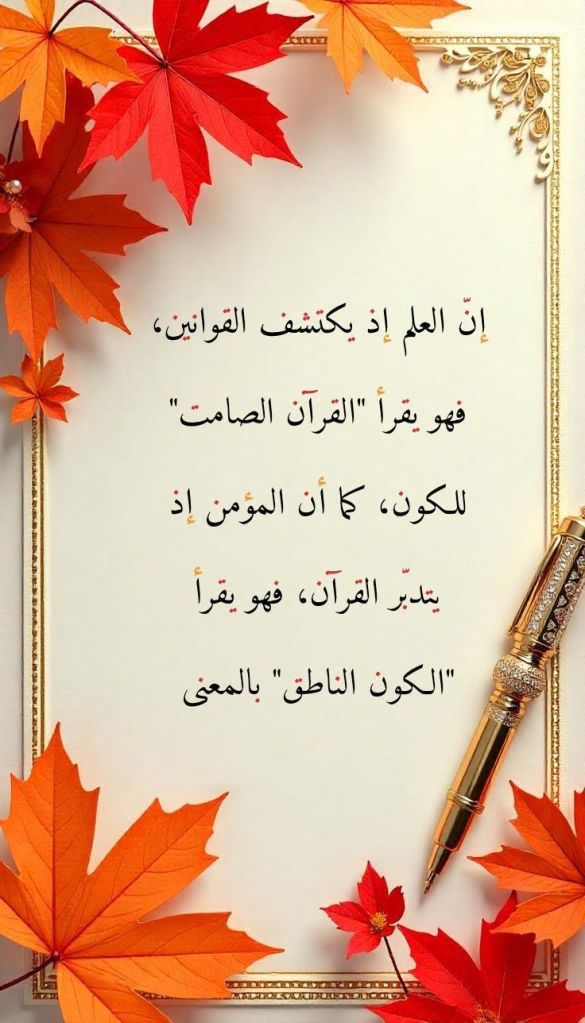 إنّ العلم إذ يكتشف القوانين،
فهو يقرأ "القرآن الصامت"
للكون، كما أن المؤمن إذ
يتدبّر القرآن، فهو يقرأ
"الكون الناطق" بالمعنى